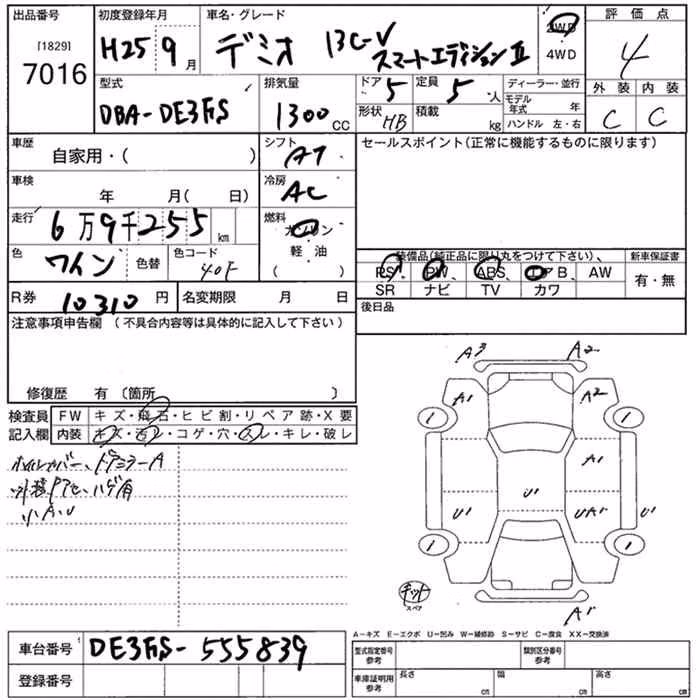 出品番号 初度登録年月 車名・グレード 評価点
[1829]
7016
H25 9月
デミオ 13C-V
スマートエディションⅡ
2WD
4WD
4
型式 排気量 ドア 5 定員 5人 ディーラー・並行 外装 内装
DBA-DE3FS 1300 CC
形状 HB 積載 kg
モデル年式 年
ハンドル 左・右
C C
車歴 シフト セールスポイント(正常に機能するものに限ります)
自家用・( ) AT
車検 冷房
年 月( 日) AC
走行 燃料
6万9千255 km ガソリン
軽油
( )
色 ワイン 色替 色コード 40F
装備品(純正品に限り丸をつけて下さい)、 新車保証書
PS、PW、ABS、エアB、AW 有・無
SR ナビ TV カワ
R券 10310 円 名変期限 月 日
後日品
注意事項申告欄 (不具合内容等は具体的に記入して下さい)
修復歴 有 〔箇所 〕
検査員 FW キズ・飛石・ヒビ割・リペア跡・X要
記入欄 内装 キズ・汚レ・コゲ・穴・スレ・キレ・破レ
ホイルカバー、ドアミラーA
外装 ハゲ有
小A.U
A3 A2
A1 A2
1 1
A1
U1
U1 UA1 U1
1 1
A1
キット
スペア
A－キズ E－エクボ U－凹み W－補修跡 S－サビ C－腐食 XX－交換済
車台番号 DE3FS-555839
登録番号
型式指定番号 参考 類別区分番号 参考
車庫証明用 参考 長さ cm 幅 cm 高さ cm